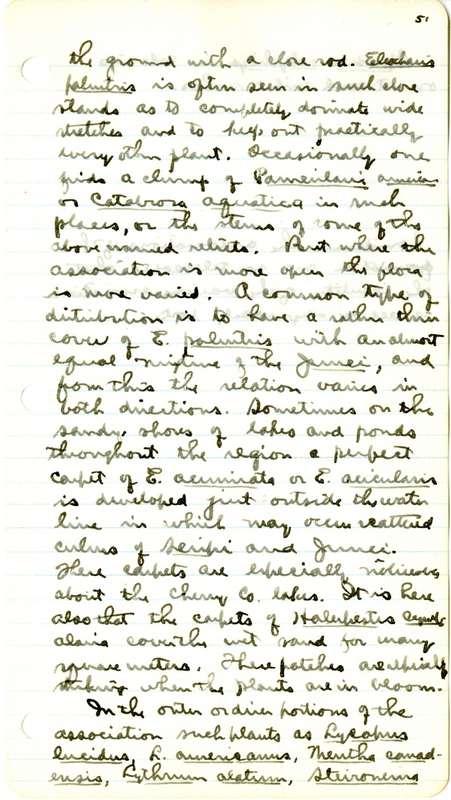 51
the ground with a close sod. Eleocharis
palustris is often seen in such close
stands as to completely dominate wide
stretches and to keep out practically
every other plant. Occasionally one
finds a clump of Panicularia american
or Catabrosa aquatica in such
places, or the stems of some of the
above named relicts. But where the
association is more open the flora
is more varied. A common type of
distribution is to have a rather thin
cover of E. palustris with an almost
equal mixture of the Junci, and
from this the relation varies in
both directions. Sometimes on the
sandy shores of lakes and ponds
throughout the region a perfect
carpet of E. acuminata or E. acicularis
is developed just outside the water
line in which may occur scattered
culms of Scirpi and Junci.
These carpets are especially noticeable
about the Cherry Co. lakes. It is here
also that the carpets of Halerpestes cymb-
alaria cover the wet sand for many
square meters. These patches are especially
striking when the plants are in bloom.
In the outer or drier portions of the
association such plants as Lycopus
lucidus, L. americanus, Mentha canad-
ensis, Lythrum alatum, Steironema